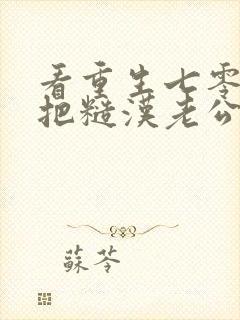 看重生七零
把糙漢老公
蘇苓